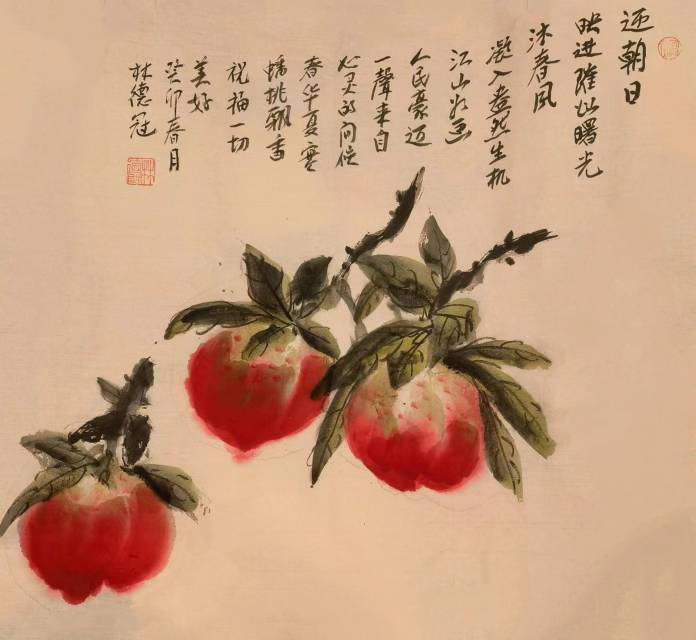 迎朝日
映进璀灿曙光
沐春风
凝入盎然生机
江山如画
人民豪迈
一聲来自
心灵的问候
春华夏实
蟠桃飘香
祝福一切
美好
癸卯春月
林德冠